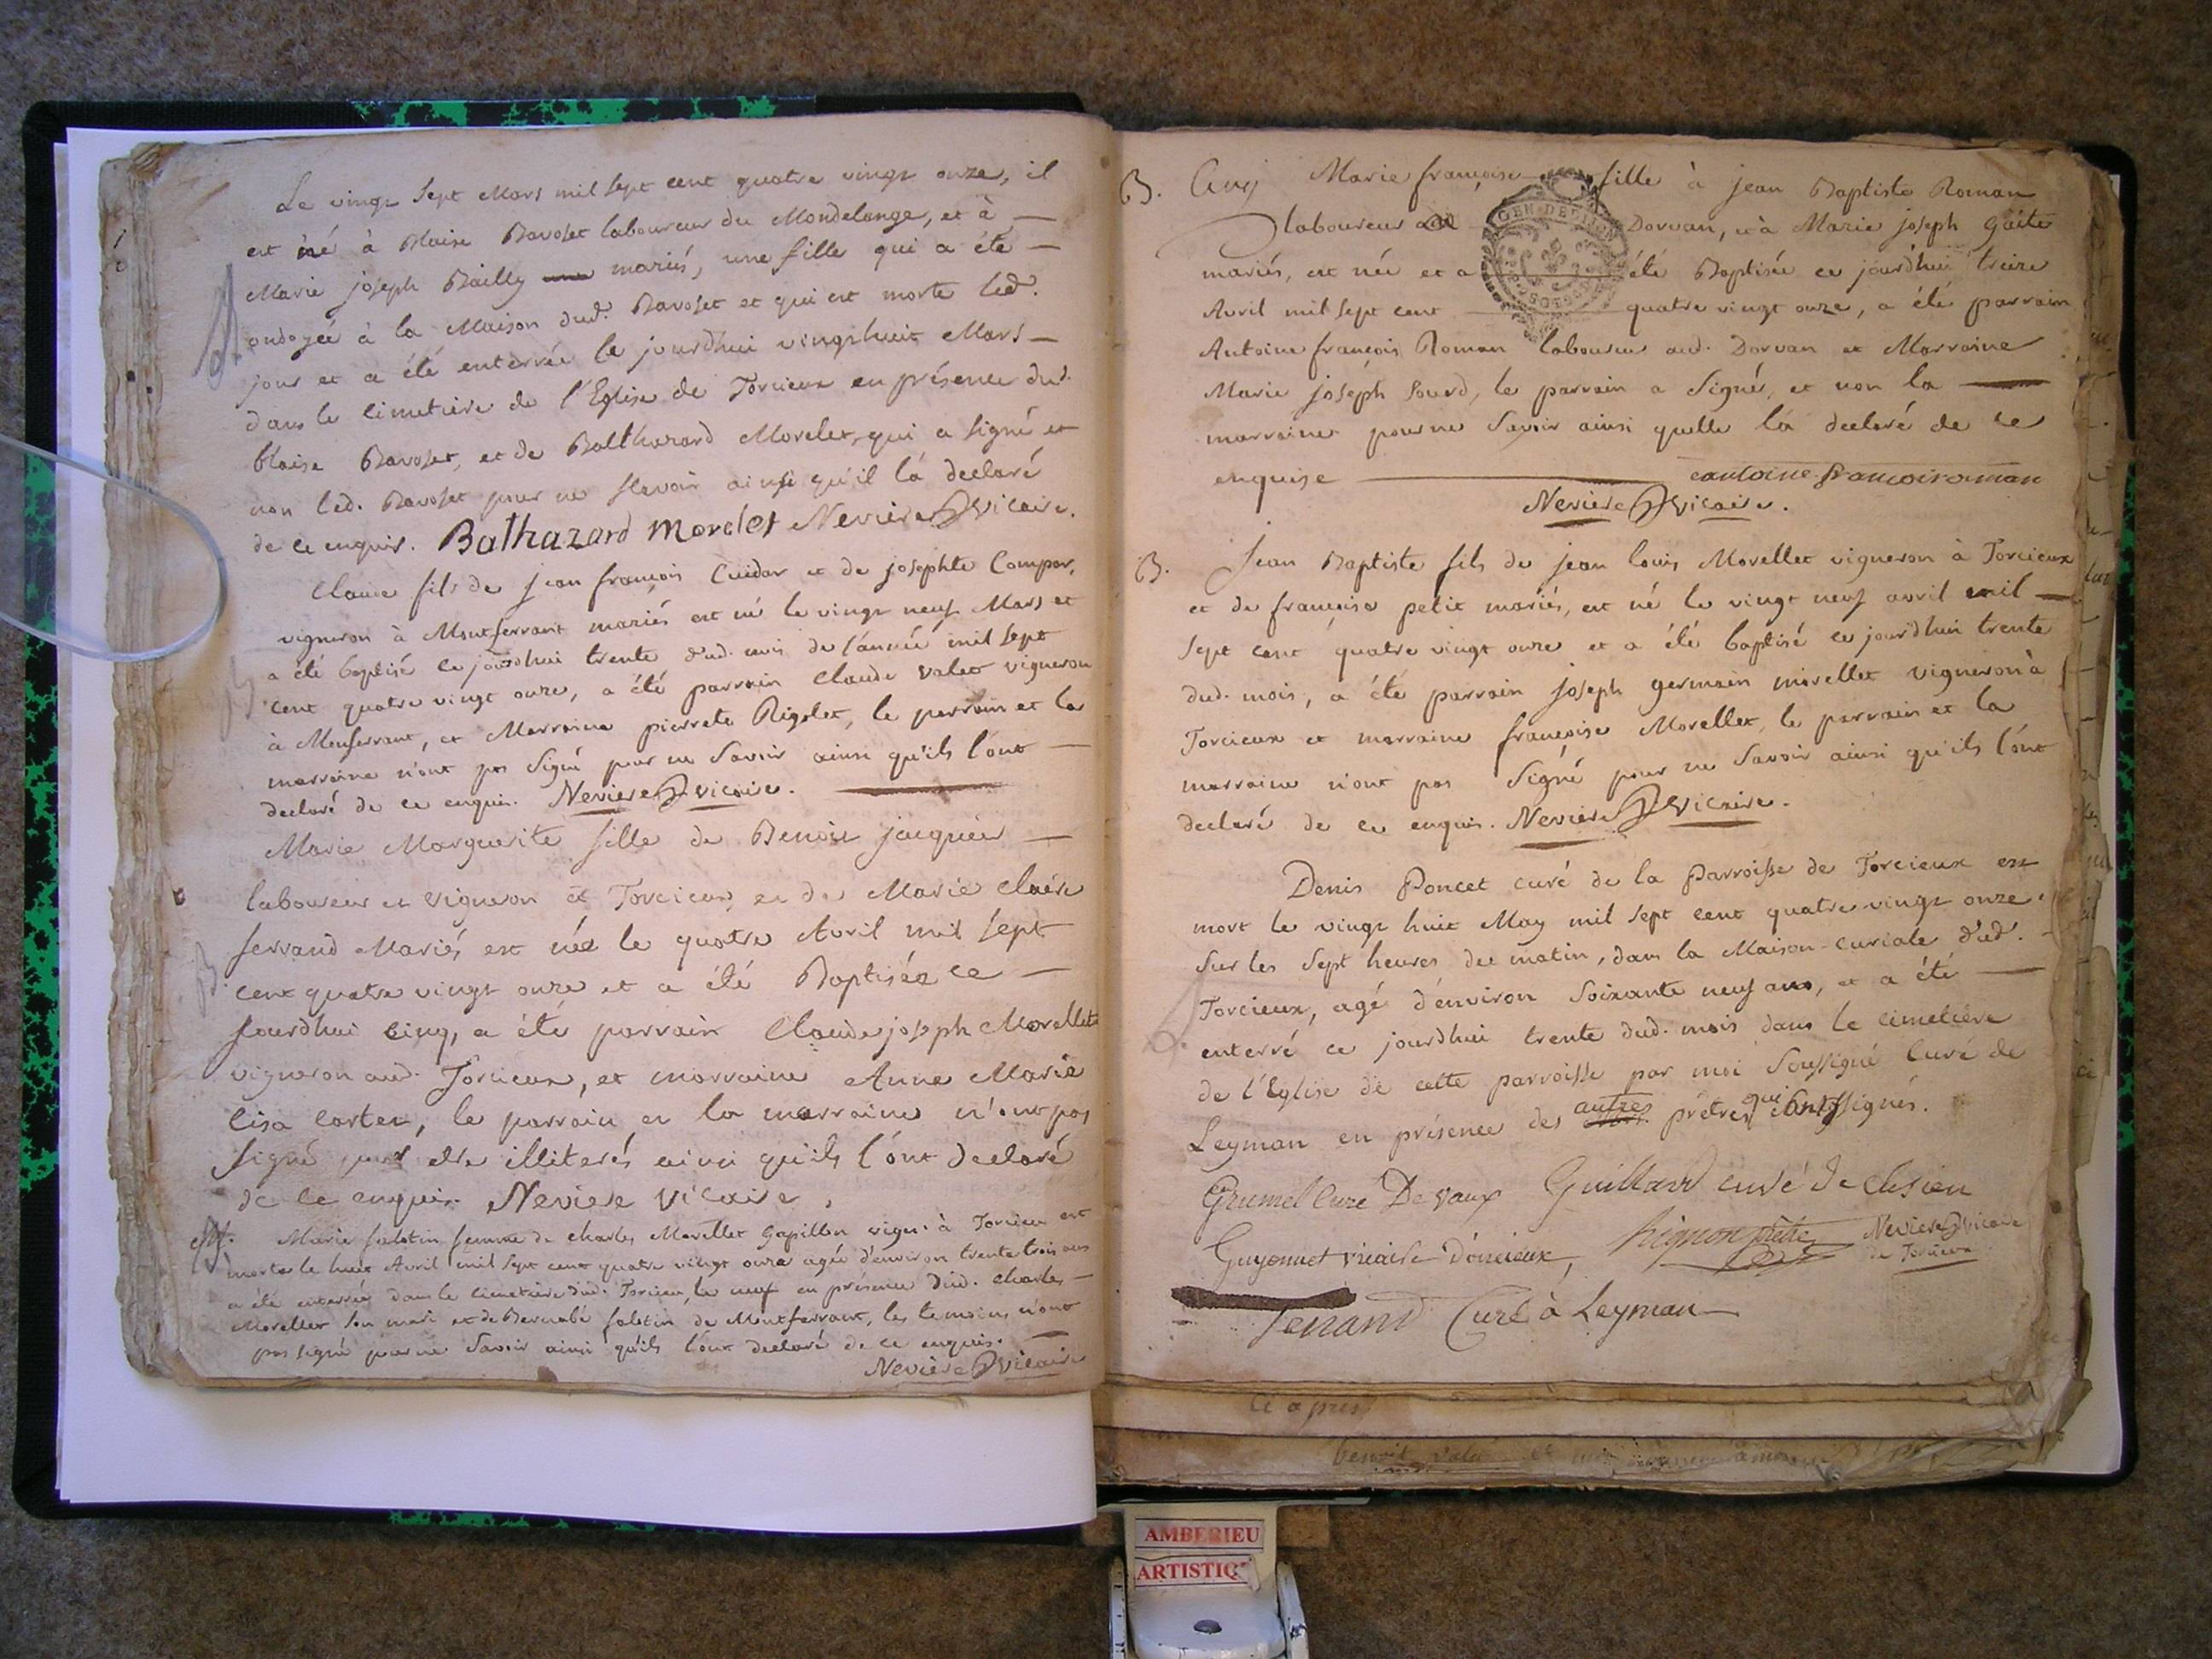 Le vingt sept Mars mil sept cent quatre vingt onze, il
est né à Blaise Bavoset laboureur du Mondelange, et à
Marie joseph Bailly mariés, une fille qui a été
ondoyée à la Maison dud. Bavoset et qui est morte led.
jour et a été enterrée le jourdhui vingthuit Mars
dans le cimetiere de l'Eglise de Torcieux en présence dud.
blaise Bavoset, et de Balthazard Morelet, qui a signé et
non led. Bavoset pour ne scavoir ainsi qu'il la declaré
de ce enquis. Balthazard Morelet Neviere vicaire.
Claude fils de jean françois Cuidar et de josephte Compar,
vigneron à Montferrant mariés est né le vingt neuf Mars et
a été baptisé ce jourdhui trente dud. mois de l'année mil sept
cent quatre vingt onze, a été parrain Claude valet vigneron
à Monferrant, et Marraine pierrete Rigolet, le parrain et la
marraine n'ont pas signé pour ne savoir ainsi qu'ils l'ont
declaré de ce enquis. Neviere vicaire.
Marie Marguerite fille de Benoit jacquier
laboureur et vigneron à Torcieux, et de Marie claire
ferrand Mariés est née le quatre Avril mil sept
cent quatre vingt onze et a été Baptisée ce
jourdhui cinq, a été parrain Claude joseph Morellet
vigneron aud. Torcieux, et marraine Anne Marie
lisa cortey, le parrain et la marraine n'ont pas
signé pour etre illiterés ainsi qu'ils l'ont declaré
de ce enquis. Neviere vicaire,
M. Marie salotin femme de charles Morellet Gapillon vign. à Torcieu est
morte le huit Avril mil sept cent quatre vingt onze agée d'environ trente trois ans
a été enterrée dans le cimetiere dud. Torcieu, le neuf en présence dud. charles
Morellet son mari et de Bernabé salotin de Montferrant, les temoins n'ont
pas signé pour ne savoir ainsi qu'ils l'ont declaré de ce enquis.
Neviere vicaire
B. Marie françoise fille à jean Baptiste Roman
laboureur Dorvan, et à Marie joseph Gaite
mariés, est née et a été Baptisée ce jourdhui treize
Avril mil sept cent quatre vingt onze, a été parrain
Antoine françois Roman laboureur aud. Dorvan et Marraine
Marie joseph Sourd, le parrain a signé, et non la
marraine pour ne savoir ainsi quelle la declaré de ce
enquise antoine francoi roman
Neviere vicaire.
B. Jean Baptiste fils de jean louis Morellet vigneron à Torcieux
et de françoise petit mariés, est né le vingt neuf avril mil
sept cent quatre vingt onze et a été baptisé ce jourdhui trente
dud. mois, a été parrain joseph germain morellet vigneron à
Torcieux et marraine françoise Morellet, le parrain et la
marraine n'ont pas signé pour ne savoir ainsi qu'ils l'ont
declaré de ce enquis. Neviere vicaire.
Denis Poncet curé de la Parroisse de Torcieux est
mort le vingt huit May mil sept cent quatre vingt onze,
sur les sept heures du matin, dans la Maison curiale dud.
Torcieux, agé d'environ soixante neuf ans, et a été
enterré ce jourdhui trente dud. mois dans le cimetière
de l'Eglise de cette parroisse par moi soussigné curé de
Leyman en présence des autres prétres qui ont signés.
Grumel curé De vaux Guillard curé de clesieu
Guyonnet vicaire D'oncieux, hignon prêtre Neviere vicaire
de Torcieu
ferrand Curé à Leyman
ce a pres
AMBERIEU
ARTISTIQ